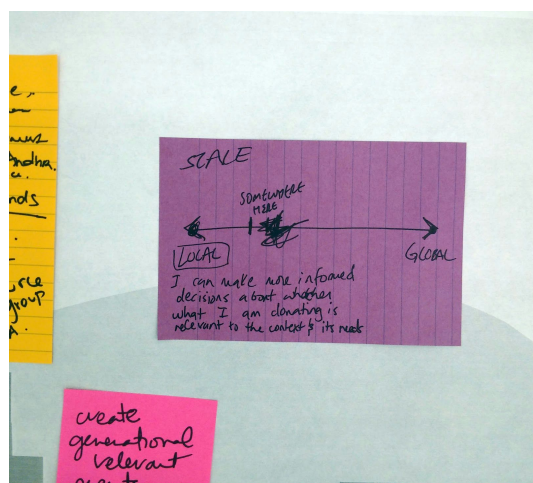 SCALE
SOMEWHERE
HERE
LOCAL GLOBAL
I can make more informed
decisions about whether
what I am donating is
relevant to the context & its needs
create
generational
relevant
e,
Andha.
nds
urce
group